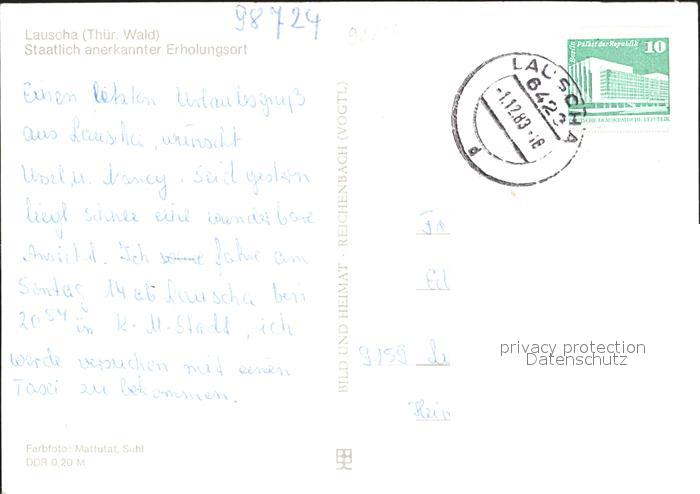 98724
Lauscha (Thür. Wald)
Staatlich anerkannter Erholungsort
Einen letzten Urlaubsgruß
aus Lauscha, wünscht
Nancy. Seid gestern
liegt Schnee eine wunderbare
Ansicht. Ich fahre am
Sontag 14 ab Lauscha bin
20⁵⁴ in K.-M.-Stadt, ich
werde versuchen mit einen
Taxi zu bekommen.
Farbfoto: Mattutat, Suhl
DDR 0,20 M
BILD UND HEIMAT · REICHENBACH (VOGTL)
LAUSCHA
6423
-1.12.83-18
a
Berlin Palast der Republik 10
DEUTSCHE DEMOKRATISCHE REPUBLIK
9159
privacy protection
Datenschutz